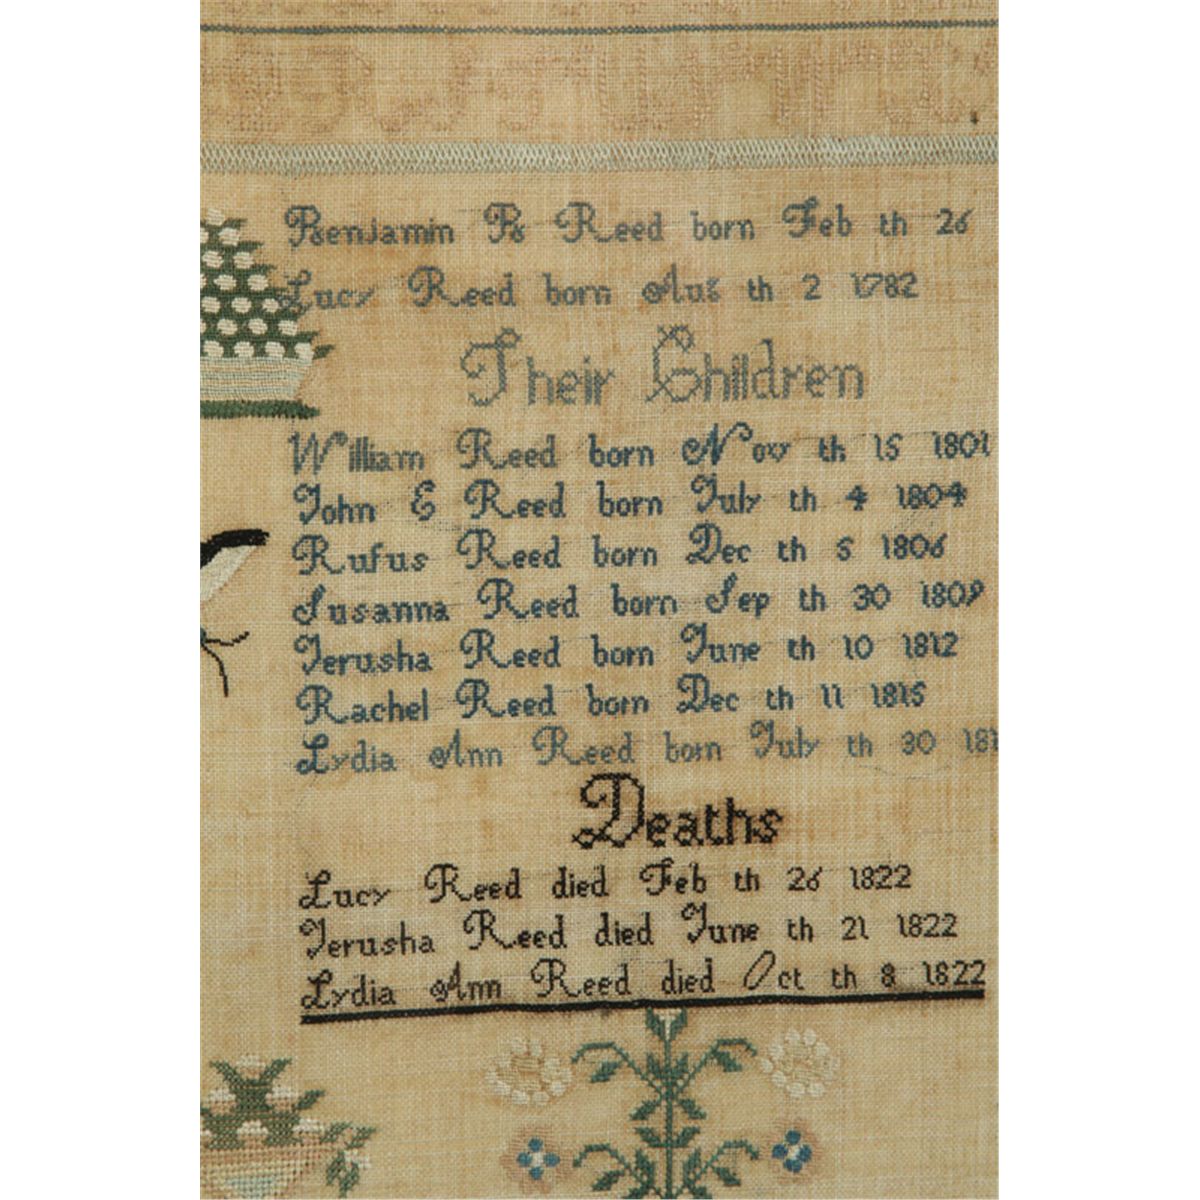 Benjamin B Reed born Feb th 26
Lucy Reed born Aug th 2 1782
Their Children
William Reed born Nov th 15 1801
John E Reed born July th 4 1804
Rufus Reed born Dec th 5 1806
Susanna Reed born Sep th 30 1809
Jerusha Reed born June th 10 1812
Rachel Reed born Dec th 11 1815
Lydia Ann Reed born July th 30
Deaths
Lucy Reed died Feb th 26 1822
Jerusha Reed died June th 21 1822
Lydia Ann Reed died Oct th 8 1822